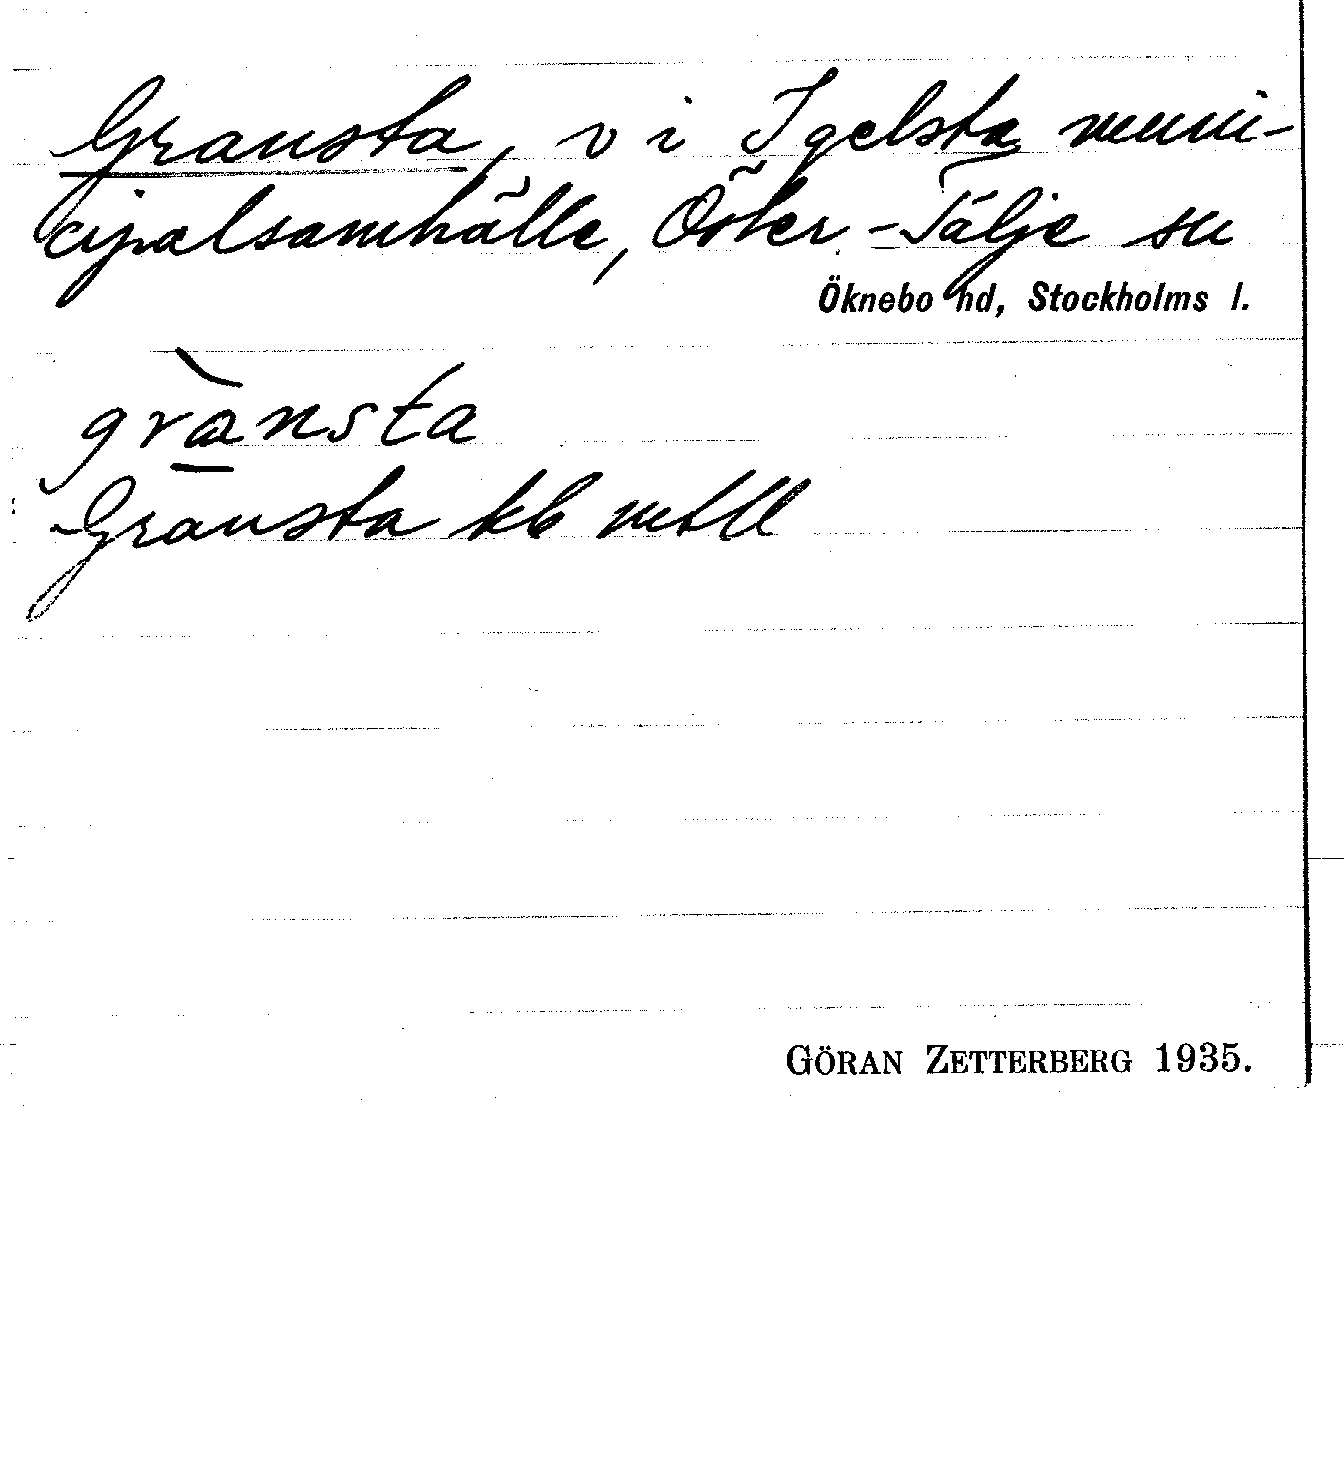 Gransta, v i Igelsta muni-
cipalsamhälle, Öster-Tälje sn
Öknebo hd, Stockholms l.
grànsta
Gransta kb mtll
GÖRAN ZETTERBERG 1935.